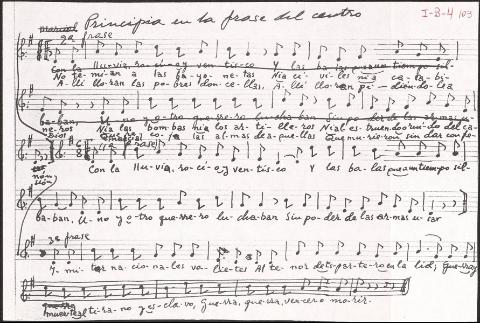 Principia en la frase del centro
I-B-4 103
musical
2a frase
Con la llu-via, ro-cí-o y ven-tis-co Y las ba-las que a un tiem-po sil-
No te-mí-an a las ba-yo-ne-tas Ni a ci-vi-les ni a ca-ra-bi-
Allí llo-ran las po-bres donce-llas, Allí llo-ran pi-dién-do-le a
ba-ban, U-no y o-tro gue-rre-ro lu-cha-ban Sin po-der de las ar-mas u-
ne-ros Ni a las bom-bas ni a los ar-ti-lle-ros Ni al es-truen-do rui-do del ca-
Dios co-ja las al-mas de a-que-llos Que mu-rie-ron sin dar con-fe-
1a frase
Con la llu-via, ro-cí-o y ven-tis-co Y las ba-las que a un tiem-po sil-
ñón
sión
ba-ban. U-no y o-tro gue-rre-ro lu-cha-ban Sin po-der de las ar-mas u-sar
3a frase
Y mi- na-cio-na-les va-lien-tes Al te-nor de la lid;
muerte al ti-ra-no y es-cla-vo, Gue-rra, gue-rra, ven-cer o mo-rir.